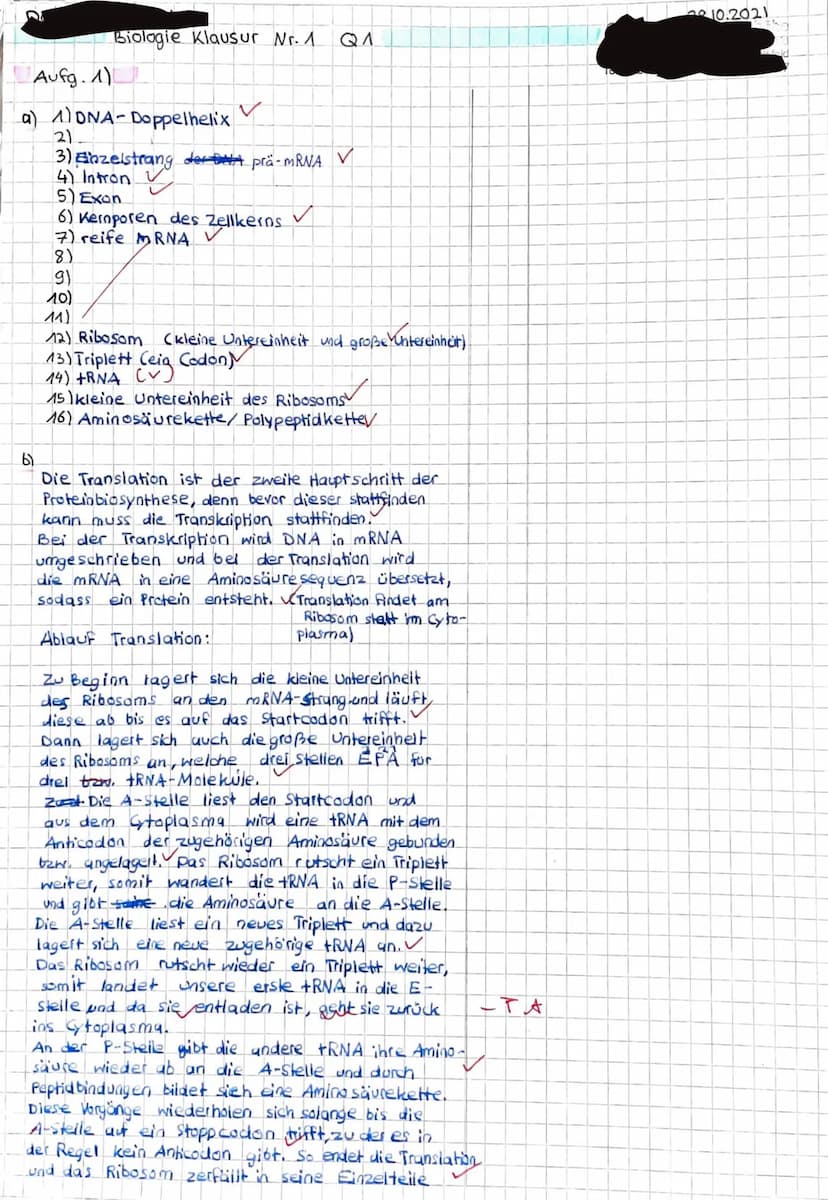 .10.2021
Biologie Klausur Nr. 1 Q1
Aufg. 1)
a) 1) DNA-Doppelhelix ✓
2)
3) Einzelstrang prä-mRNA ✓
4) Intron ✓
5) Exon ✓
6) Kernporen des Zellkerns ✓
7) reife mRNA ✓
8)
9)
10)
11)
12) Ribosom (kleine Untereinheit und große Untereinheit) ✓
13) Triplett (ein Codon) ✓
14) tRNA (✓)
15) kleine Untereinheit des Ribosoms ✓
16) Aminosäurekette/ Polypeptidkette ✓
b)
Die Translation ist der zweite Hauptschritt der
Proteinbiosynthese, denn bevor dieser stattfinden
kann muss die Transkription stattfinden. ✓
Bei der Transkription wird DNA in mRNA
umgeschrieben und bei der Translation wird
die mRNA in eine Aminosäuresequenz übersetzt,
sodass ein Protein entsteht. ✓ (Translation findet am
Ribosom statt im Cyto-
plasma)
Ablauf Translation:
Zu Beginn lagert sich die kleine Untereinheit
des Ribosoms an den mRNA-Strang und läuft
diese ab bis es auf das Startcodon trifft. ✓
Dann lagert sich auch die große Untereinheit
des Ribosoms an, welche drei Stellen EPA für
drei bzw. tRNA-Moleküle. ✓
Die A-Stelle liest den Startcodon und
aus dem Cytoplasma wird eine tRNA mit dem
Anticodon der zugehörigen Aminosäure gebunden
bzw. angelagert. ✓ Das Ribosom rutscht ein Triplett
weiter, somit wandert die tRNA in die P-Stelle
und gibt die Aminosäure an die A-Stelle.
Die A-Stelle liest ein neues Triplett und dazu
lagert sich eine neue zugehörige tRNA an. ✓
Das Ribosom rutscht wieder ein Triplett weiter,
somit landet unsere erste tRNA in die E-
Stelle und da sie entladen ist, geht sie zurück – T A
ins Cytoplasma.
An der P-Stelle gibt die andere tRNA ihre Amino-
säure wieder ab an die A-Stelle und durch ✓
Peptidbindungen bildet sich eine Aminosäurekette.
Diese Vorgänge wiederholen sich solange bis die
A-Stelle auf ein Stoppcodon trifft, zu der es in
der Regel kein Anticodon gibt. So endet die Translation
und das Ribosom zerfällt in seine Einzelteile ✓